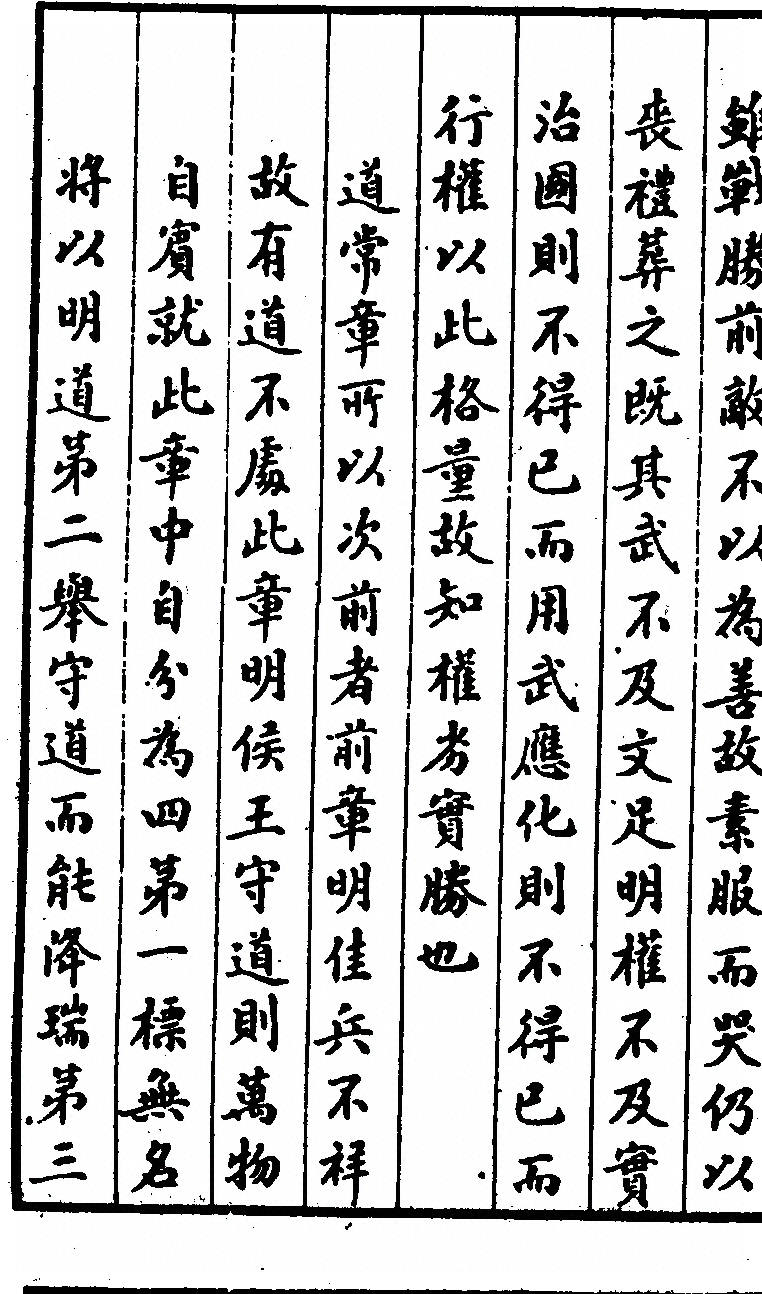 雖戰勝前敵不以為善故素服而哭仍以
喪禮葬之既其武不及文足明權不及實
治國則不得已而用武應化則不得已而
行權以此格量故知權劣實勝也
道常章所以次前者前章明佳兵不祥
故有道不處此章明侯王守道則萬物
自賓就此章中自分為四第一標無名
將以明道第二舉守道而能降瑞第三